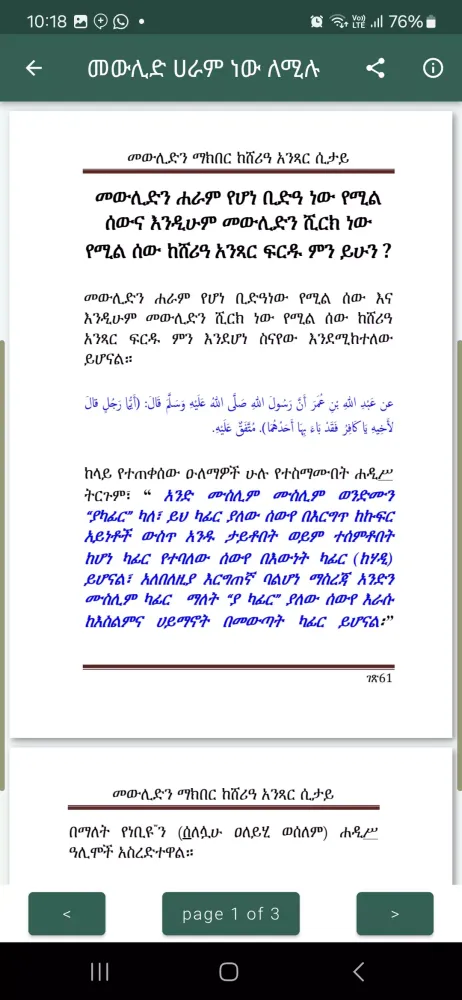 10:18
Vo)) LTE 76%
መውሊድ ሀራም ነው ለሚሉ
መውሊድን ማክበር ከሸሪዓ አንጻር ሲታይ
መውሊድን ሐራም የሆነ ቢድዓ ነው የሚል
ሰውና እንዲሁም መውሊድን ሺርክ ነው
የሚል ሰው ከሸሪዓ አንጻር ፍርዱ ምን ይሁን ?
መውሊድን ሐራም የሆነ ቢድዓነው የሚል ሰው እና
እንዲሁም መውሊድን ሺርክ ነው የሚል ሰው ከሸሪዓ
አንጻር ፍርዱ ምን እንደሆነ ስናየው እንደሚከተለው
ይሆናል።
عن عَبْدِ اللهِ بْنِ عُمَرَ أَنَّ رَسُولَ اللهِ صَلَّى اللهُ عَلَيْهِ وَسَلَّمَ قَالَ: (أَيُّمَا رَجُلٍ قَالَ
لأَخِيهِ يَاكَافِرُ فَقَدْ بَاءَ بِهَا أَحَدُهُمَا). مُتَّفَقٌ عَلَيْهِ.
ከላይ የተጠቀሰው ዑለማዎች ሁሉ የተስማሙበት ሐዲሥ
ትርጉም፣ “ አንድ ሙስሊም ሙስሊም ወንድሙን
“ያካፊር” ካለ፣ ይህ ካፊር ያለው ሰውየ በእርግጥ ከኩፍር
አይነቶች ውስጥ አንዱ ታይቶበት ወይም ተሰምቶበት
ከሆነ ካፊር የተባለው ሰውየ በእውነት ካፊር (ከሃዲ)
ይሆናል፣ አለበለዚያ እርግጠኛ ባልሆነ ማስረጃ አንድን
ሙስሊም ካፊር ማለት “ያ ካፊር” ያለው ሰውየ እራሱ
ከእስልምና ሀይማኖት በመውጣት ካፊር ይሆናል፡”
ገጽ61
መውሊድን ማክበር ከሸሪዓ አንጻር ሲታይ
በማለት የነቢዩ ን (ሰለሏሁ ዐለይሂ ወሰለም) ሐዲሥ
ዓሊሞች አስረድተዋል።
< page 1 of 3 >